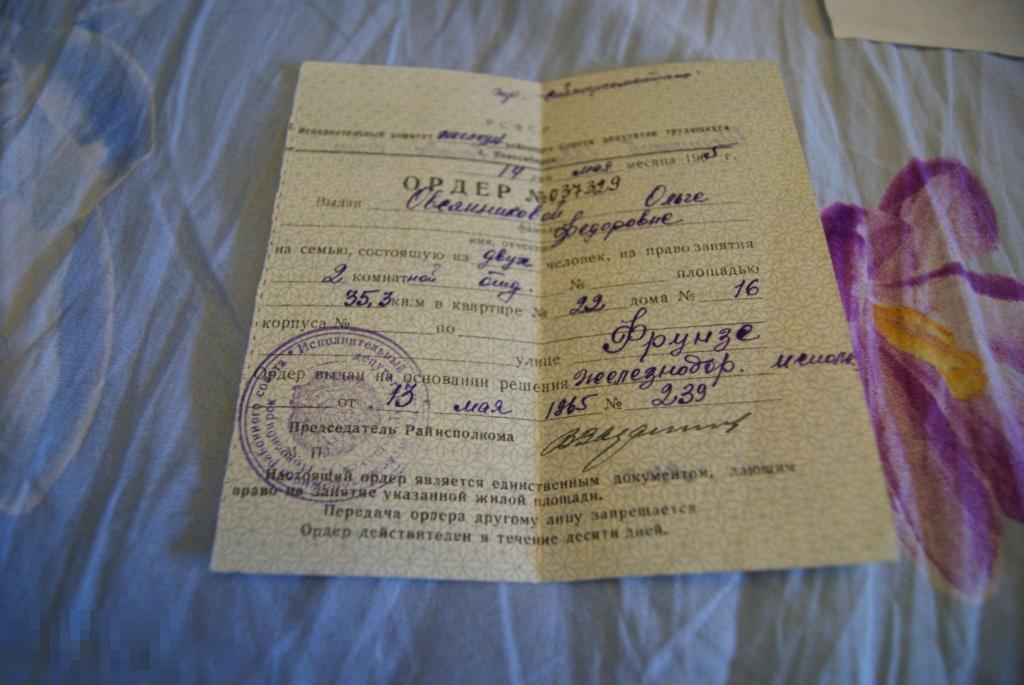 РСФСР
Исполнительный комитет районного Совета депутатов трудящихся
г. Новосибирск
14 мая месяца 1965 г.
ОРДЕР № 037329
Выдан Овсянниковой Ольге
Федоровне
имя, отчество
на семью, состоящую из двух человек, на право занятия
2 комнатной отд № площадью
35,3 кв.м в квартире № 22 дома № 16
корпуса № по
улице Фрунзе
Ордер выдан на основании решения Железнодор.
от „13" мая 1965 № 239
Председатель Райисполкома
М. П.
Настоящий ордер является единственным документом, дающим
право на занятие указанной жилой площади.
Передача ордера другому лицу запрещается
Ордер действителен в течение десяти дней.
Исполнительный
районного совета